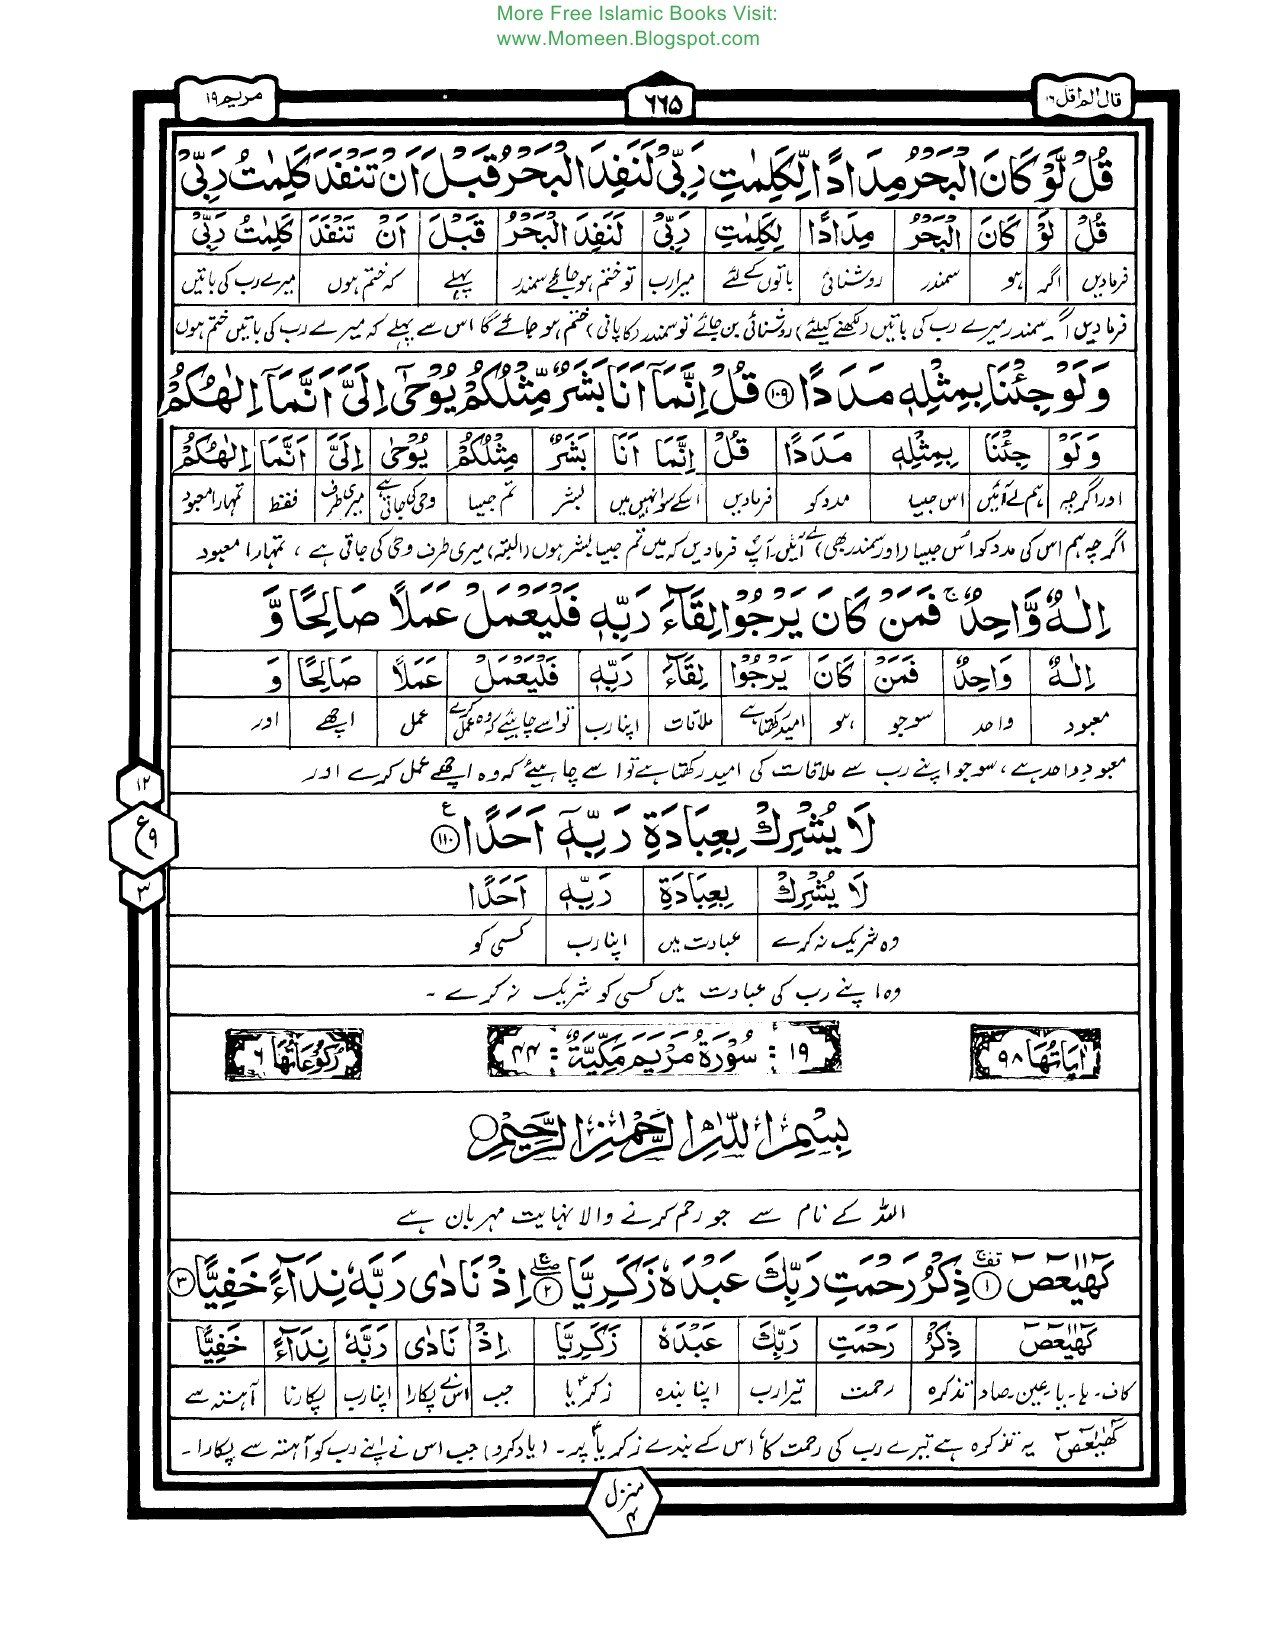 More Free Islamic Books Visit:
www.Momeen.Blogspot.com
قال الم اقل ١٦
٦٦۵
مریم ۱۹
قُلْ لَّوْ كَانَ الْبَحْرُ مِدَادًا لِّكَلِمٰتِ رَبِّیْ لَنَفِدَ الْبَحْرُ قَبْلَ اَنْ تَنْفَدَ كَلِمٰتُ رَبِّیْ
قُلْ لَّوْ كَانَ الْبَحْرُ مِدَادًا لِّكَلِمٰتِ رَبِّیْ لَنَفِدَ الْبَحْرُ قَبْلَ اَنْ تَنْفَدَ كَلِمٰتُ رَبِّیْ
فرمادیں اگر ہو سمندر روشنائی باتوں کے لئے میرا رب تو ختم ہوجائے سمندر پہلے کہ ختم ہوں میرے رب کی باتیں
فرما دیں اگر سمندر میرے رب کی باتیں (لکھنے کیلئے) روشنائی بن جائے تو سمندر (کا پانی) ختم ہو جائے گا اس سے پہلے کہ میرے رب کی باتیں ختم ہوں
وَلَوْ جِئْنَا بِمِثْلِهٖ مَدَدًا ۱۰۹ قُلْ اِنَّمَاۤ اَنَا بَشَرٌ مِّثْلُكُمْ یُوْحٰۤی اِلَیَّ اَنَّمَاۤ اِلٰهُكُمْ
وَلَوْ جِئْنَا بِمِثْلِهٖ مَدَدًا قُلْ اِنَّمَا اَنَا بَشَرٌ مِّثْلُكُمْ یُوْحٰی اِلَیَّ اَنَّمَا اِلٰهُكُمْ
اور اگرچہ ہم لے آئیں اس جیسا مدد کو فرمادیں اسکے سوا نہیں میں بشر تم جیسا وحی کی جاتی ہے میری طرف فقط تمہارا معبود
اگرچہ ہم اس کی مدد کو اُس جیسا (اور سمندر بھی) لے آئیں۔ آپ فرمادیں کہ میں تم جیسا بشر ہوں (البتہ) میری طرف وحی کی جاتی ہے ، تمہارا معبود
اِلٰهٌ وَّاحِدٌ ۚ فَمَنْ كَانَ یَرْجُوْا لِقَآءَ رَبِّهٖ فَلْیَعْمَلْ عَمَلًا صَالِحًا وَّ
اِلٰهٌ وَّاحِدٌ فَمَنْ كَانَ یَرْجُوْا لِقَآءَ رَبِّهٖ فَلْیَعْمَلْ عَمَلًا صَالِحًا وَّ
معبود واحد سو جو ہو امید رکھتا ہے ملاقات اپنا رب تو اسے چاہیئے کہ وہ عمل کرے عمل اچھے اور
معبودِ واحد ہے ، سو جو اپنے رب سے ملاقات کی امید رکھتا ہے تو اسے چاہیئے کہ وہ اچھے عمل کرے اور
۱۲
ع ۹
۳
لَا یُشْرِكْ بِعِبَادَةِ رَبِّهٖۤ اَحَدًا ۱۱۰ ع
لَا یُشْرِكْ بِعِبَادَةِ رَبِّهٖ اَحَدًا
وہ شریک نہ کرے عبادت میں اپنا رب کسی کو
وہ اپنے رب کی عبادت میں کسی کو شریک نہ کرے ۔
اٰیَاتُهَا ۹۸
۱۹ : سُوْرَةُ مَرْیَمَ مَكِّیَّةٌ : ۴۴
رُكُوْعَاتُهَا ۶
بِسْمِ اللّٰهِ الرَّحْمٰنِ الرَّحِیْمِ
اللہ کے نام سے جو رحم کرنے والا نہایت مہربان ہے
كٓهٰیٰعٓصٓ ۱ ذِكْرُ رَحْمَتِ رَبِّكَ عَبْدَهٗ زَكَرِیَّا ۲ اِذْ نَادٰی رَبَّهٗ نِدَآءً خَفِیًّا ۳
كٓهٰیٰعٓصٓ ذِكْرُ رَحْمَتِ رَبِّكَ عَبْدَهٗ زَكَرِیَّا اِذْ نَادٰی رَبَّهٗ نِدَآءً خَفِیًّا
کاف۔ ہا۔ یا۔ عین۔ صاد تذکرہ رحمت تیرا رب اپنا بندہ زکریا جب اس نے پکارا اپنا رب پکارنا آہستہ سے
كٓهٰیٰعٓصٓ یہ تذکرہ ہے تیرے رب کی رحمت کا، اس کے بندے زکریا پر۔ (یاد کرو) جب اس نے اپنے رب کو آہستہ سے پکارا۔
منزل ۴